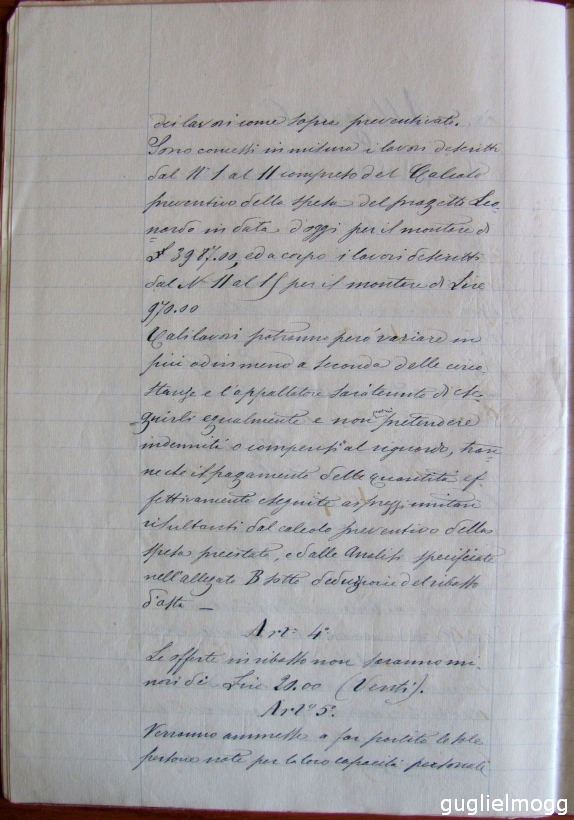 dei lavori come sopra preventivati.
Sono concessi in misura i lavori descritti
dal N° 1 al 11 compreso del Calcolo
preventivo della spesa del progetto Leo-
nardo in data d'oggi per il montare di
£ 3987.00, ed a corpo i lavori descritti
dal N° 11 al 15 per il montare di Lire
970.00
Tali lavori potranno però variare in
più od in meno a seconda delle circo-
stanze e l'appaltatore sarà tenuto di ese-
guirli egualmente e non potrà pretendere
indennità o compensi al riguardo, tran-
ne che il pagamento delle quantità ef-
fettivamente eseguite ai prezzi unitari
risultanti dal calcolo preventivo della
spesa precitata, e dalle Analisi specificate
nell'allegato B sotto deduzione del ribasso
d'asta —
Art.° 4°
Le offerte in ribasso non saranno mi-
nori di Lire 20.00 (Venti).
Art.° 5°.
Verranno ammesse a far partito le sole
persone note per la loro capacità personale
guglielmogg